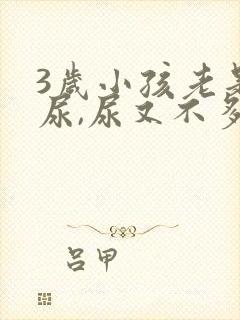 3岁小孩老是
尿,尿又不多
吕甲